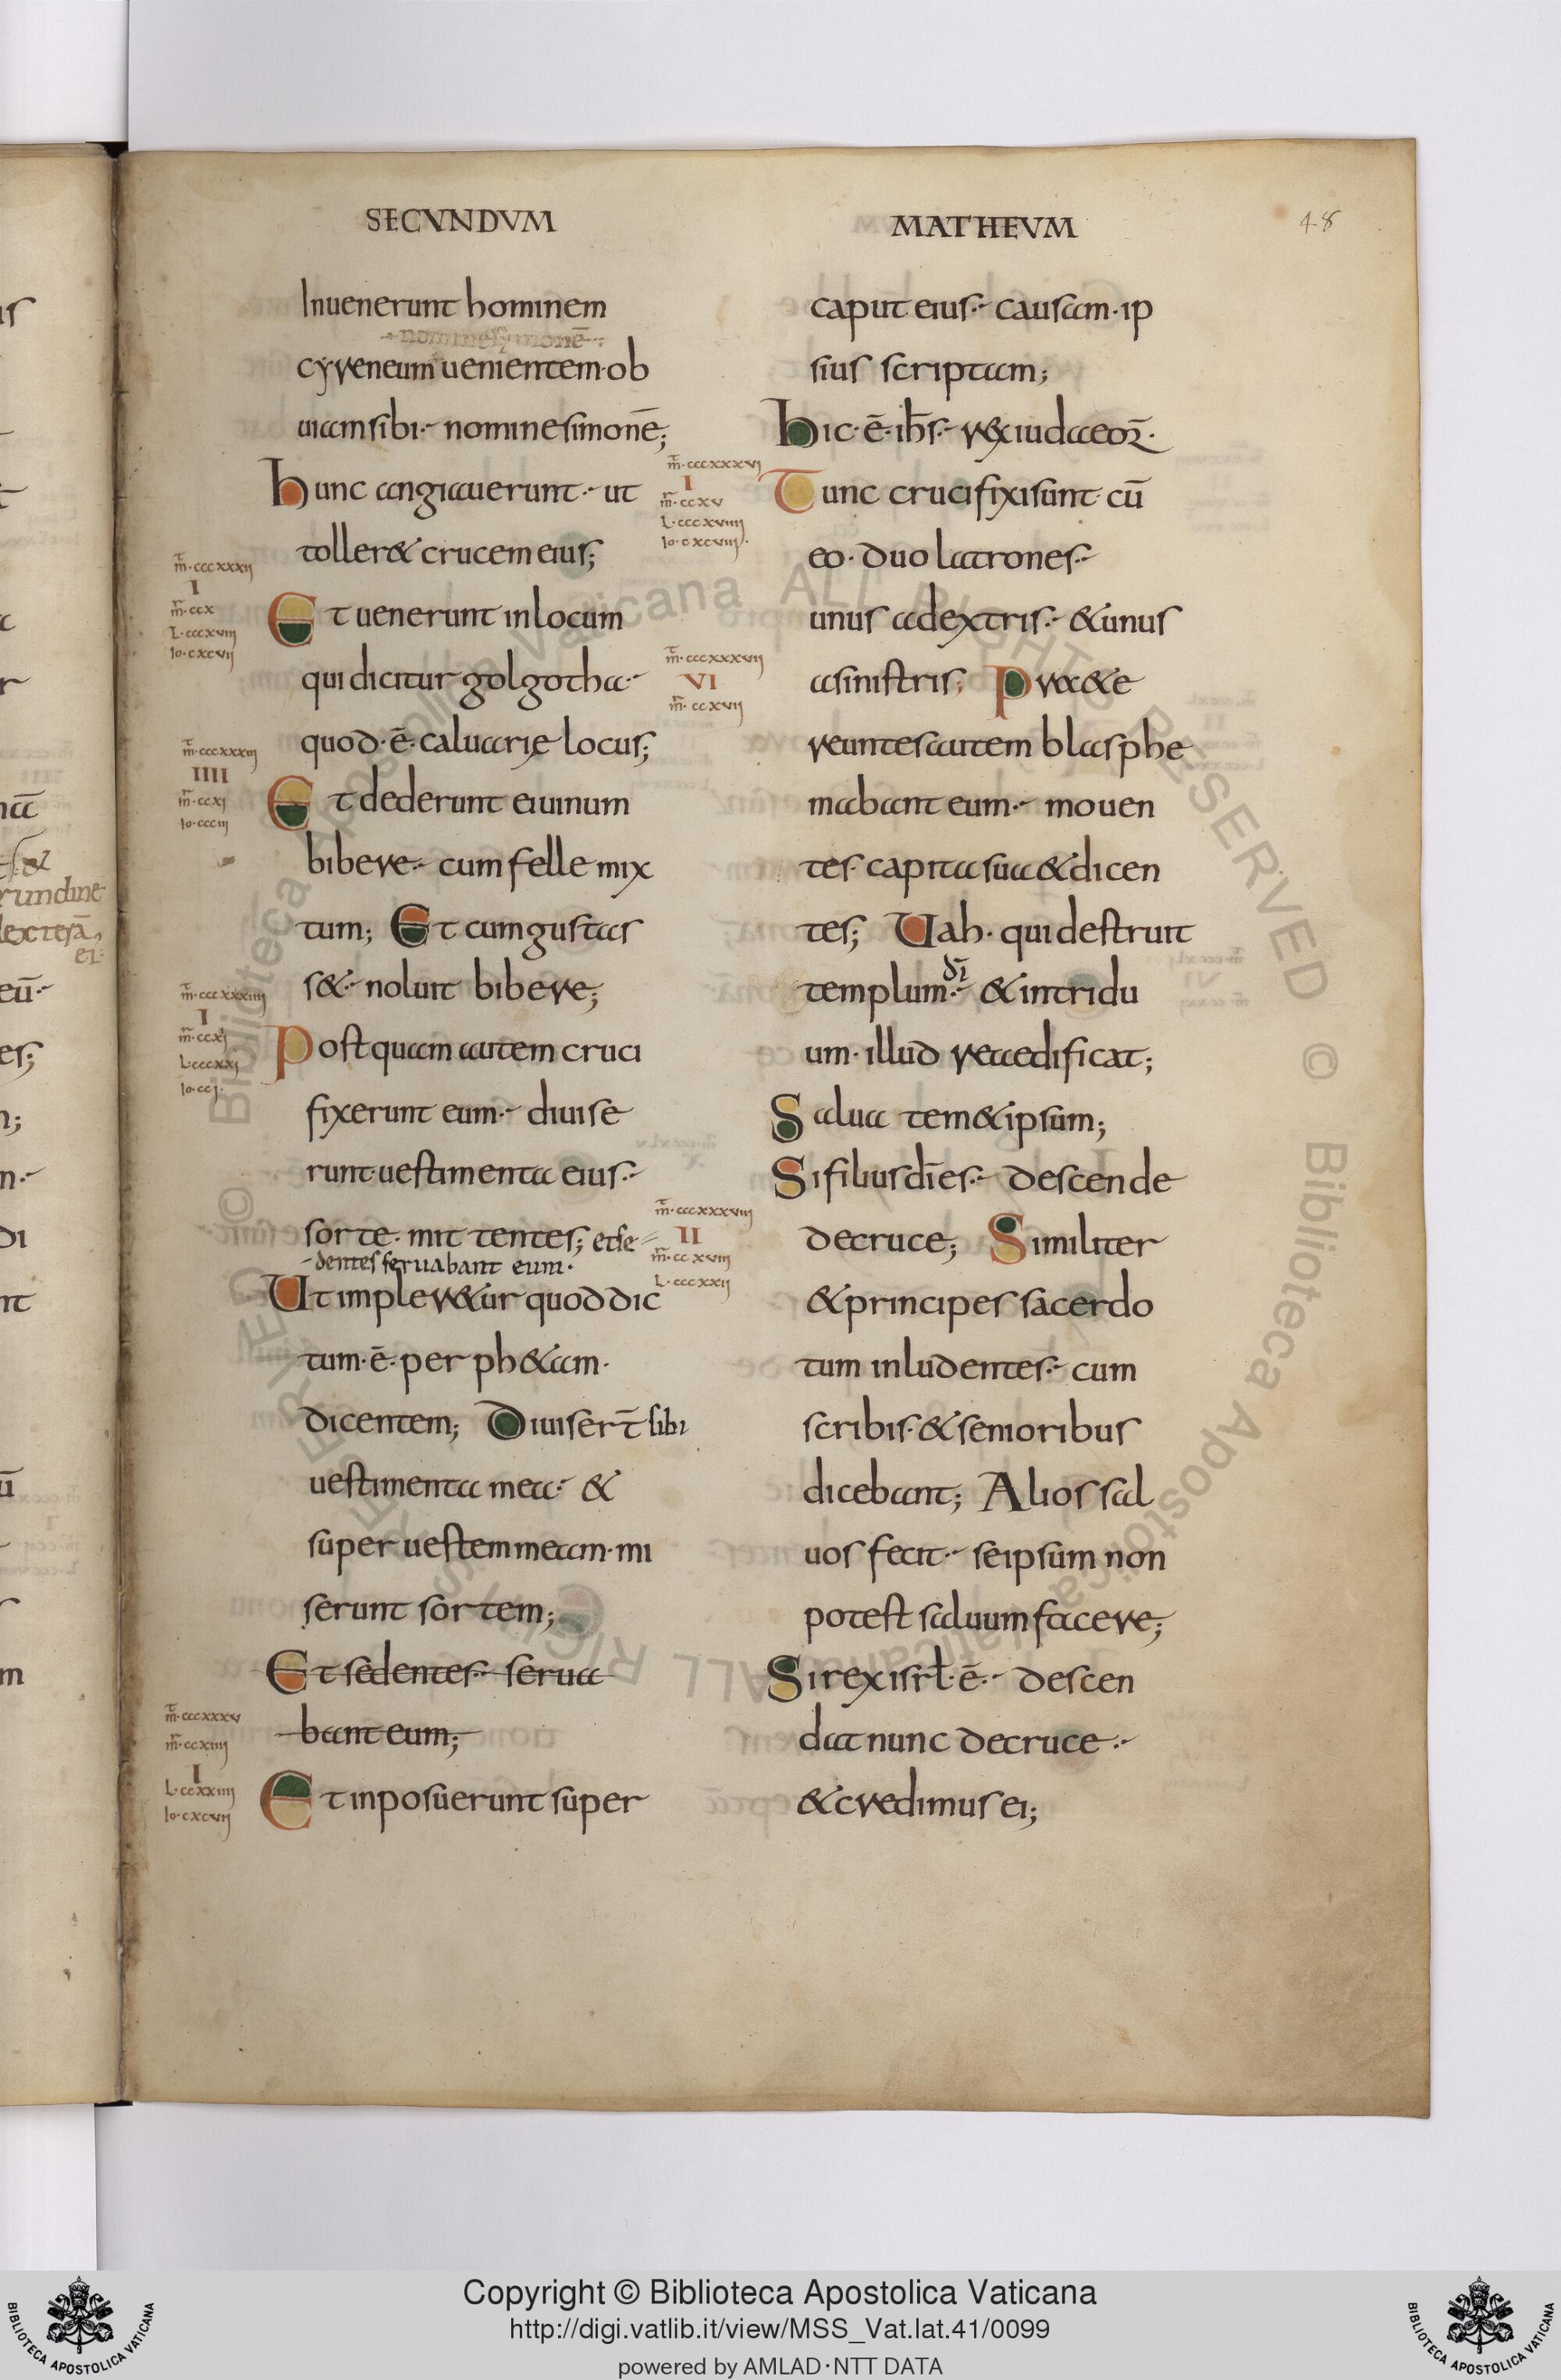 SECVNDVM
Inuenerunt hominem
cyreneum uenientem·ob
uiam sibi·- nomine simonē;
hunc angiauerunt·- ut
toller& crucem eius;
Et uenerunt in locum
qui dicitur golgotha·-
quod·ē·caluarię locus;
Et dederunt ei uinum
bibere·- cum felle mix
tum; Et cum gustas
s&·- noluit bibere;
Postquam autem cruci
fixerunt eum·- diuise
runt·uestimenta eius·-
sorte·mittentes; et se
dentes seruabant eum·
Ut impler&ur quod dic
tum·ē·per ph&am·
dicentem; Diuiser̄t sibi
uestimenta mea·- &
super uestem meam·mi
serunt sortem;
Et sedentes·- serua
bant eum;
Et inposuerunt super
m̄·cccxxxii
I
m̄·ccx
L·cccxviii
Io·cxcvii
m̄·cccxxxiii
IIII
m̄·ccxi
Io·ccciii
m̄·cccxxxiiii
I
m̄·ccxi
L·cccxxi
Io·cci·
m̄·cccxxxv
m̄·ccxiiii
I
L·ccxxiiii
Io·cxcvii
MATHEVM
48
caput eius·- causam·ip
sius scriptam;
hic·ē·ih̄s·- r&x iudaeoꝝ·
Tunc crucifixi sunt·cū
eo·duo latrones·-
unus a dextris·- & unus
a sinistris; Pra&e
reuntes autem blasphe
mabant eum·- mouen
tes·capita sua & dicen
tes; Uah·qui destruit
templum·- dī & in tridu
um·illud reaedificat;
Salua tem&ipsum;
Si filius dī es·- descende
de cruce; Similiter
& principes sacerdo
tum inludentes·- cum
scribis·& senioribus
dicebant; Alios sal
uos fecit·- seipsum non
potest saluum facere;
Si rex isrł·ē·- descen
dat nunc de cruce·-
& credimus ei;
m̄·cccxxxvi
I
m̄·ccxv
L·cccxviiii
Io·cxcviii·
m̄·cccxxxvii
VI
m̄·ccxvii
m̄·cccxxxviii
II
m̄·ccxviii
L·cccxxii
Copyright © Biblioteca Apostolica Vaticana
http://digi.vatlib.it/view/MSS_Vat.lat.41/0099
powered by AMLAD·NTT DATA
BIBLIOTECA APOSTOLICA VATICANA
BIBLIOTECA APOSTOLICA VATICANA